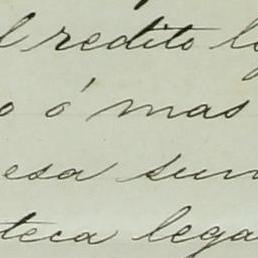 l redito l
o ó mas
esa su
teca lega